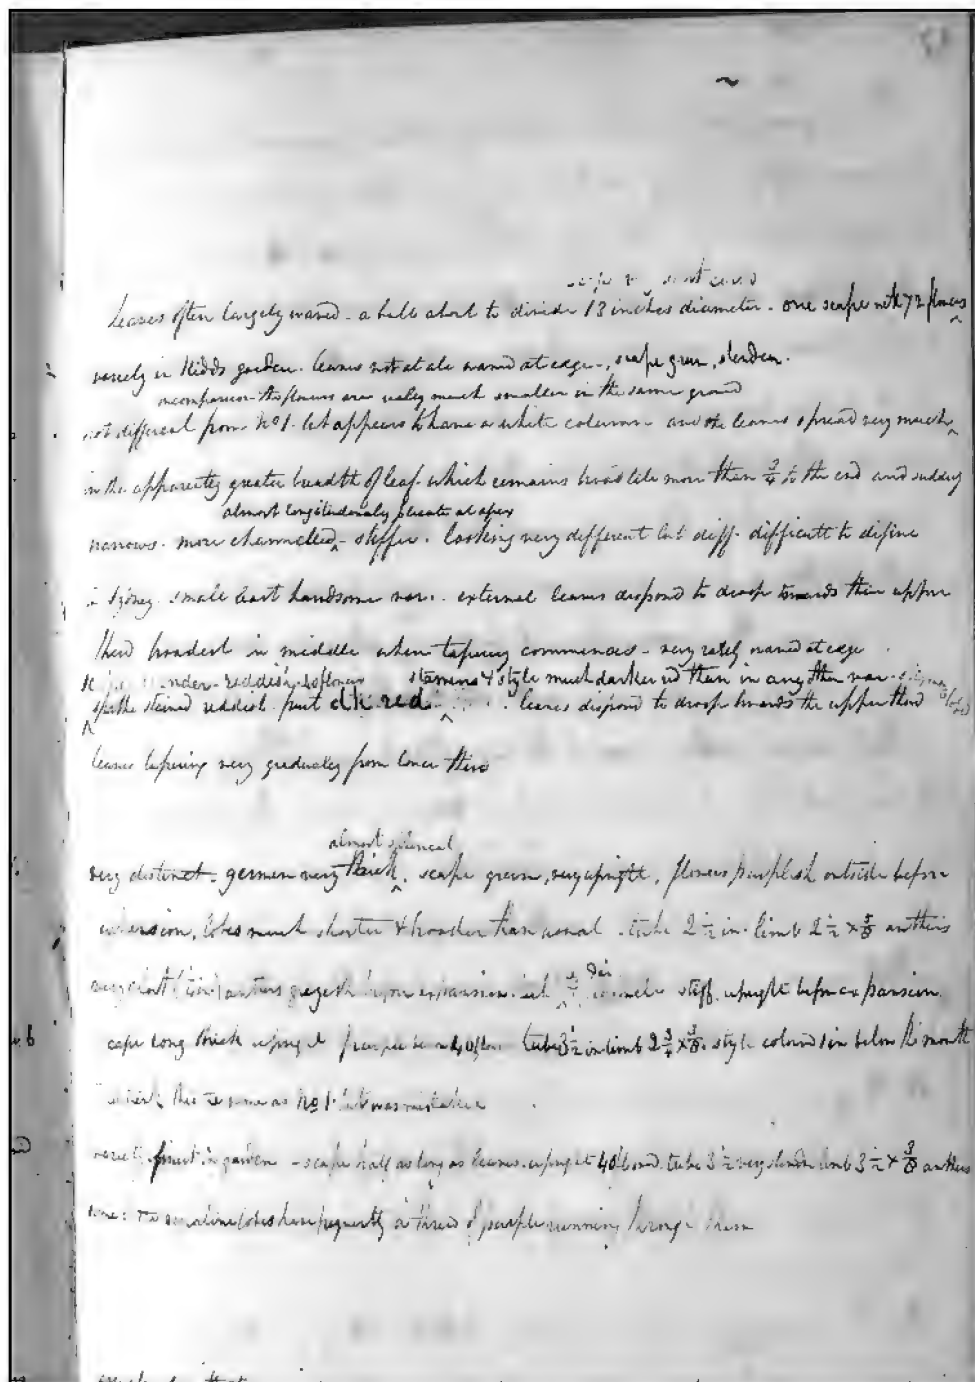 Leaves often largely waved - a bulb about to divide 13 inches diameter. one scape with 72 flowers
variety in Kidds garden. leaves not at all waved at edge -, scape green, slender.
on comparison the flowers are very much smaller in the same ground
not different from No 1. but appears to have a white column and the leaves spread very much
in the apparently greater breadth of leaf which remains broad till more than 3/4 to the end and suddenly
almost longitudinally plicate at apex
narrows. more channelled - stiffer. looking very different but diff. difficult to define
Sydney. small but handsome var. external leaves disposed to droop towards their upper
third broadest in middle when tapering commences - very rarely waved at edge
slender reddish flowers stamens & style much darker red than in any other var.
spathe stained reddish. fruit dk. red leaves disposed to droop towards the upper third
leaves tapering very gradually from lower third
almost spherical
very distinct. germen very thick. scape green, very upright, flowers purplish outside before
expansion, lobes much shorter & broader than usual. tube 2 1/2 in. limb 2 1/2 x 5/8 anthers
anthers upon expansion. stiff upright before expansion.
scape long thick upright purple tube 3 1/2 in limb 2 3/4 x 3/8. style coloured 1 in below the mouth
this the same as No 1. but was mistaken
in garden - scape half as long as leaves. upright 40 tube 3 1/2 very slender limb 3 1/2 x 3/8 anthers
lobes have frequently a thread of purple running through them